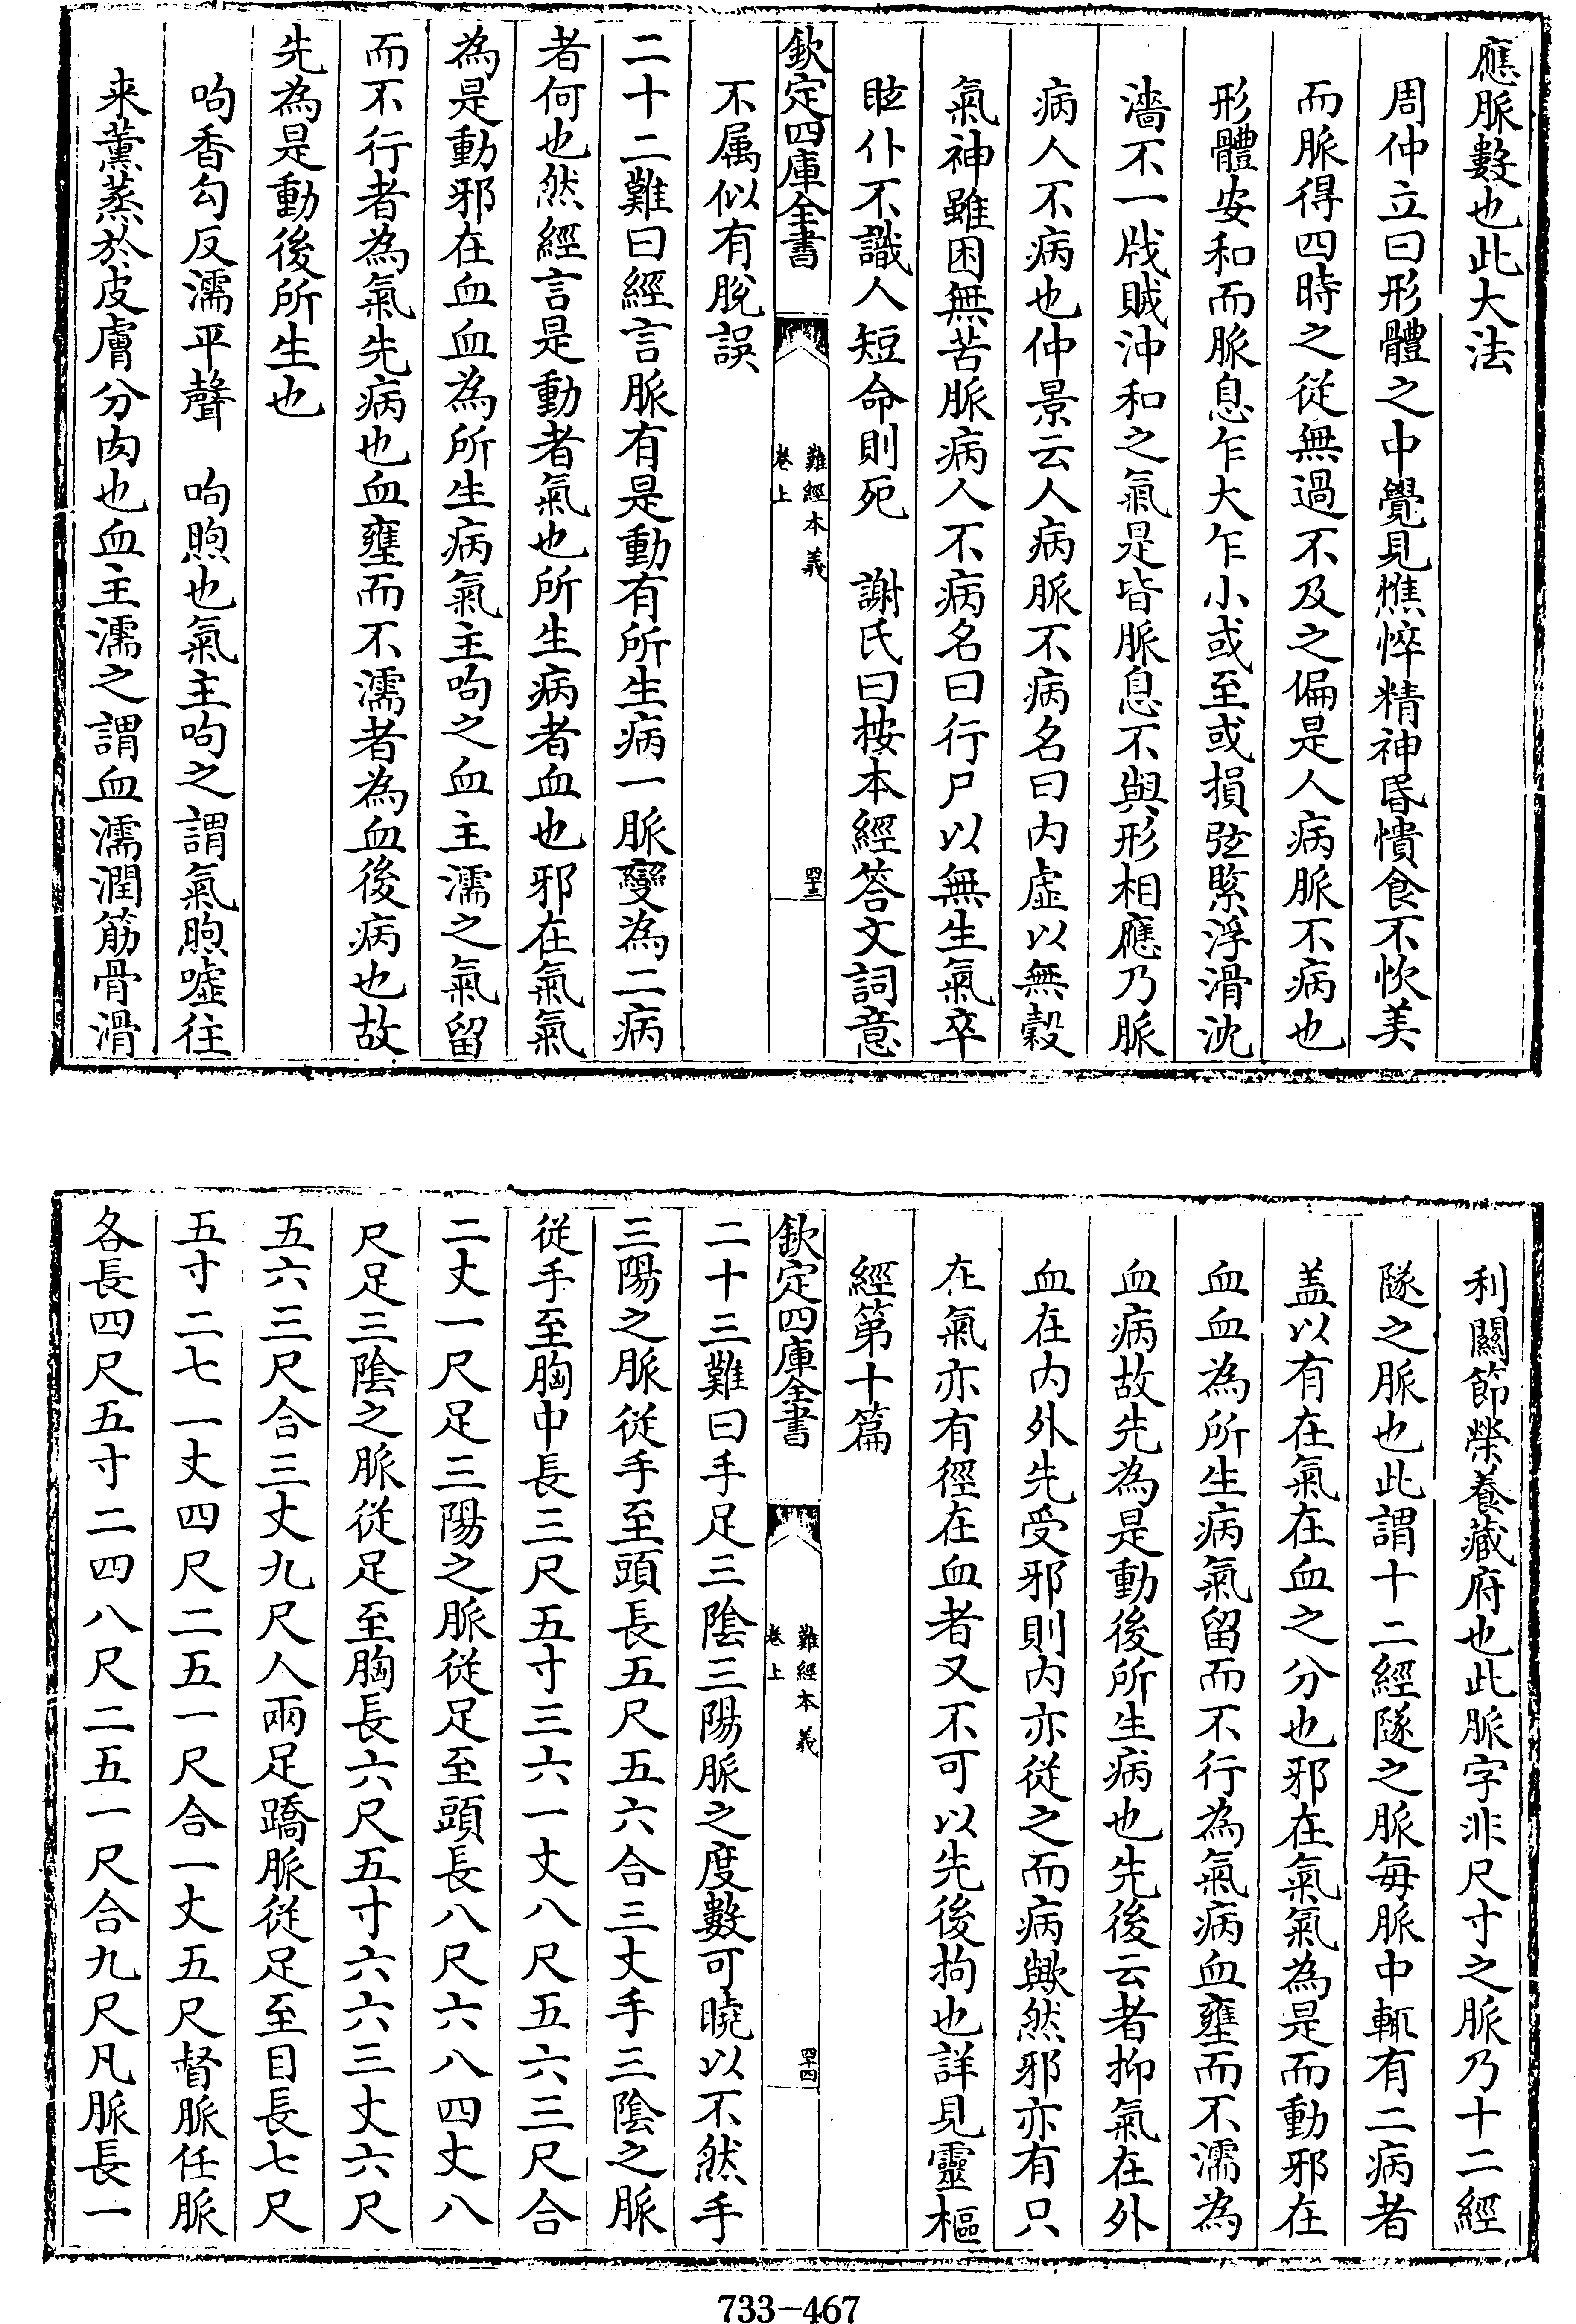 應脈數也此大法
周仲立曰形體之中覺見憔悴精神昬憒食不忺美
而脈得四時之從無過不及之偏是人病脈不病也
形體安和而脈息乍大乍小或至或損弦緊浮滑沈
濇不一戕賊沖和之氣是皆脈息不與形相應乃脈
病人不病也仲景云人病脈不病名曰内虛以無穀
氣神雖困無苦脈病人不病名曰行尸以無生氣卒
眩仆不識人短命則死　謝氏曰按本經答文詞意
欽定四庫全書
難經本義
卷上
四十三
不属似有脫誤
二十二難曰經言脈有是動有所生病一脈變為二病
者何也然經言是動者氣也所生病者血也邪在氣氣
為是動邪在血血為所生病氣主呴之血主濡之氣留
而不行者為氣先病也血壅而不濡者為血後病也故
先為是動後所生也
呴香勾反濡平聲　呴煦也氣主呴之謂氣煦噓往
来薰蒸於皮膚分肉也血主濡之謂血濡潤筋骨滑
利關節榮養藏府也此脈字非尺寸之脈乃十二經
隧之脈也此謂十二經隧之脈每脈中輒有二病者
盖以有在氣在血之分也邪在氣氣為是而動邪在
血血為所生病氣留而不行為氣病血壅而不濡為
血病故先為是動後所生病也先後云者抑氣在外
血在内外先受邪則内亦從之而病歟然邪亦有只
在氣亦有徑在血者又不可以先後拘也詳見靈樞
經第十篇
欽定四庫全書
難經本義
卷上
四十四
二十三難曰手足三陰三陽脈之度數可曉以不然手
三陽之脈從手至頭長五尺五六合三丈手三陰之脈
從手至胸中長三尺五寸三六一丈八尺五六三尺合
二丈一尺足三陽之脈從足至頭長八尺六八四丈八
尺足三陰之脈從足至胸長六尺五寸六六三丈六尺
五六三尺合三丈九尺人兩足蹻脈從足至目長七尺
五寸二七一丈四尺二五一尺合一丈五尺督脈任脈
各長四尺五寸二四八尺二五一尺合九尺凡脈長一
733-467